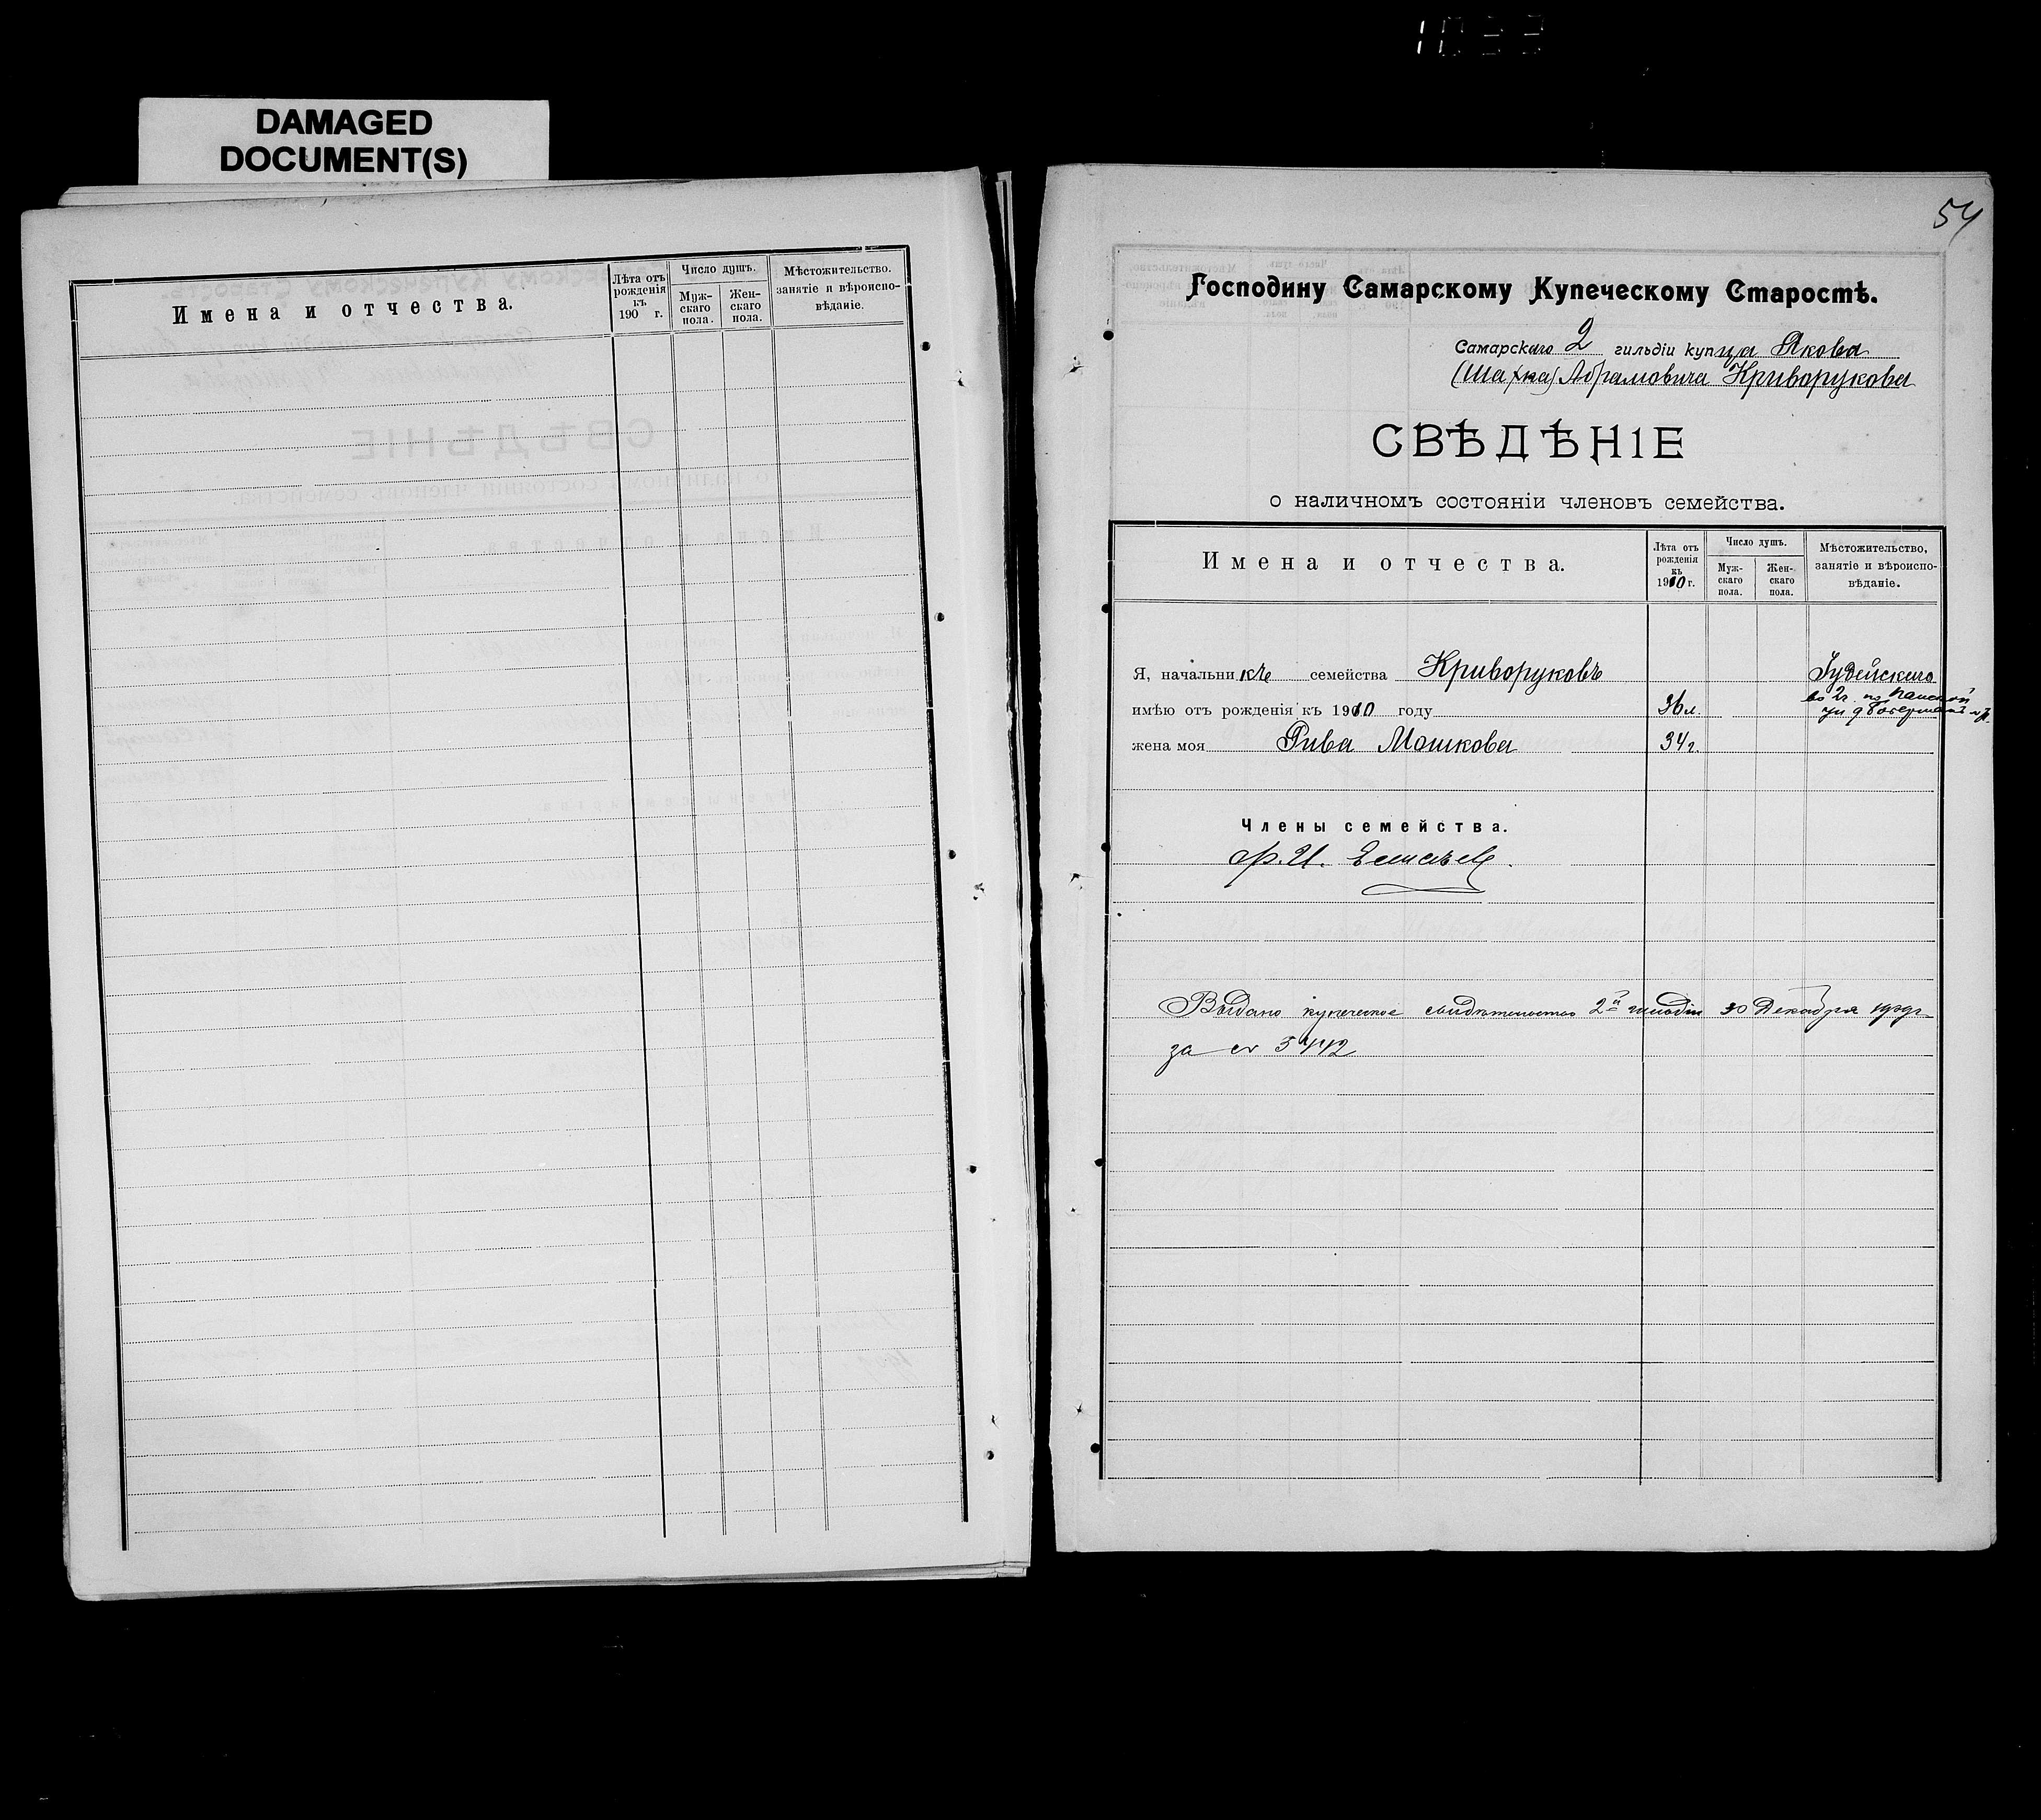 1033
DAMAGED
DOCUMENT(S)
Имена и отчества.
Лѣта отъ
рожденія
къ
190 г.
Число душъ.
Муж-
скаго
пола.
Жен-
скаго
пола.
Мѣстожительство.
занятіе и вѣроиспо-
вѣданіе.
54
Господину Самарскому Купеческому Старостѣ.
Самарскаго 2 гильдіи купца Якова
Абрамовича Криворукова
СВѢДѢНІЕ
о наличномъ состояніи членовъ семейства.
Имена и отчества.
Лѣта отъ
рожденія
къ
1910 г.
Число душъ.
Муж-
скаго
пола.
Жен-
скаго
пола.
Мѣстожительство,
занятіе и вѣроиспо-
вѣданіе.
Я, начальникъ семейства Криворуковъ
Іудейскаго
имѣю отъ рожденія къ 1910 году 36 л.
во 2 ч. по Панской
ул д
жена моя Рива Мошкова 34 г.
Члены семейства.
Выдано купеческое свидѣтельство 2й гильдіи 30 Декабря 1909 г.
за № 5442